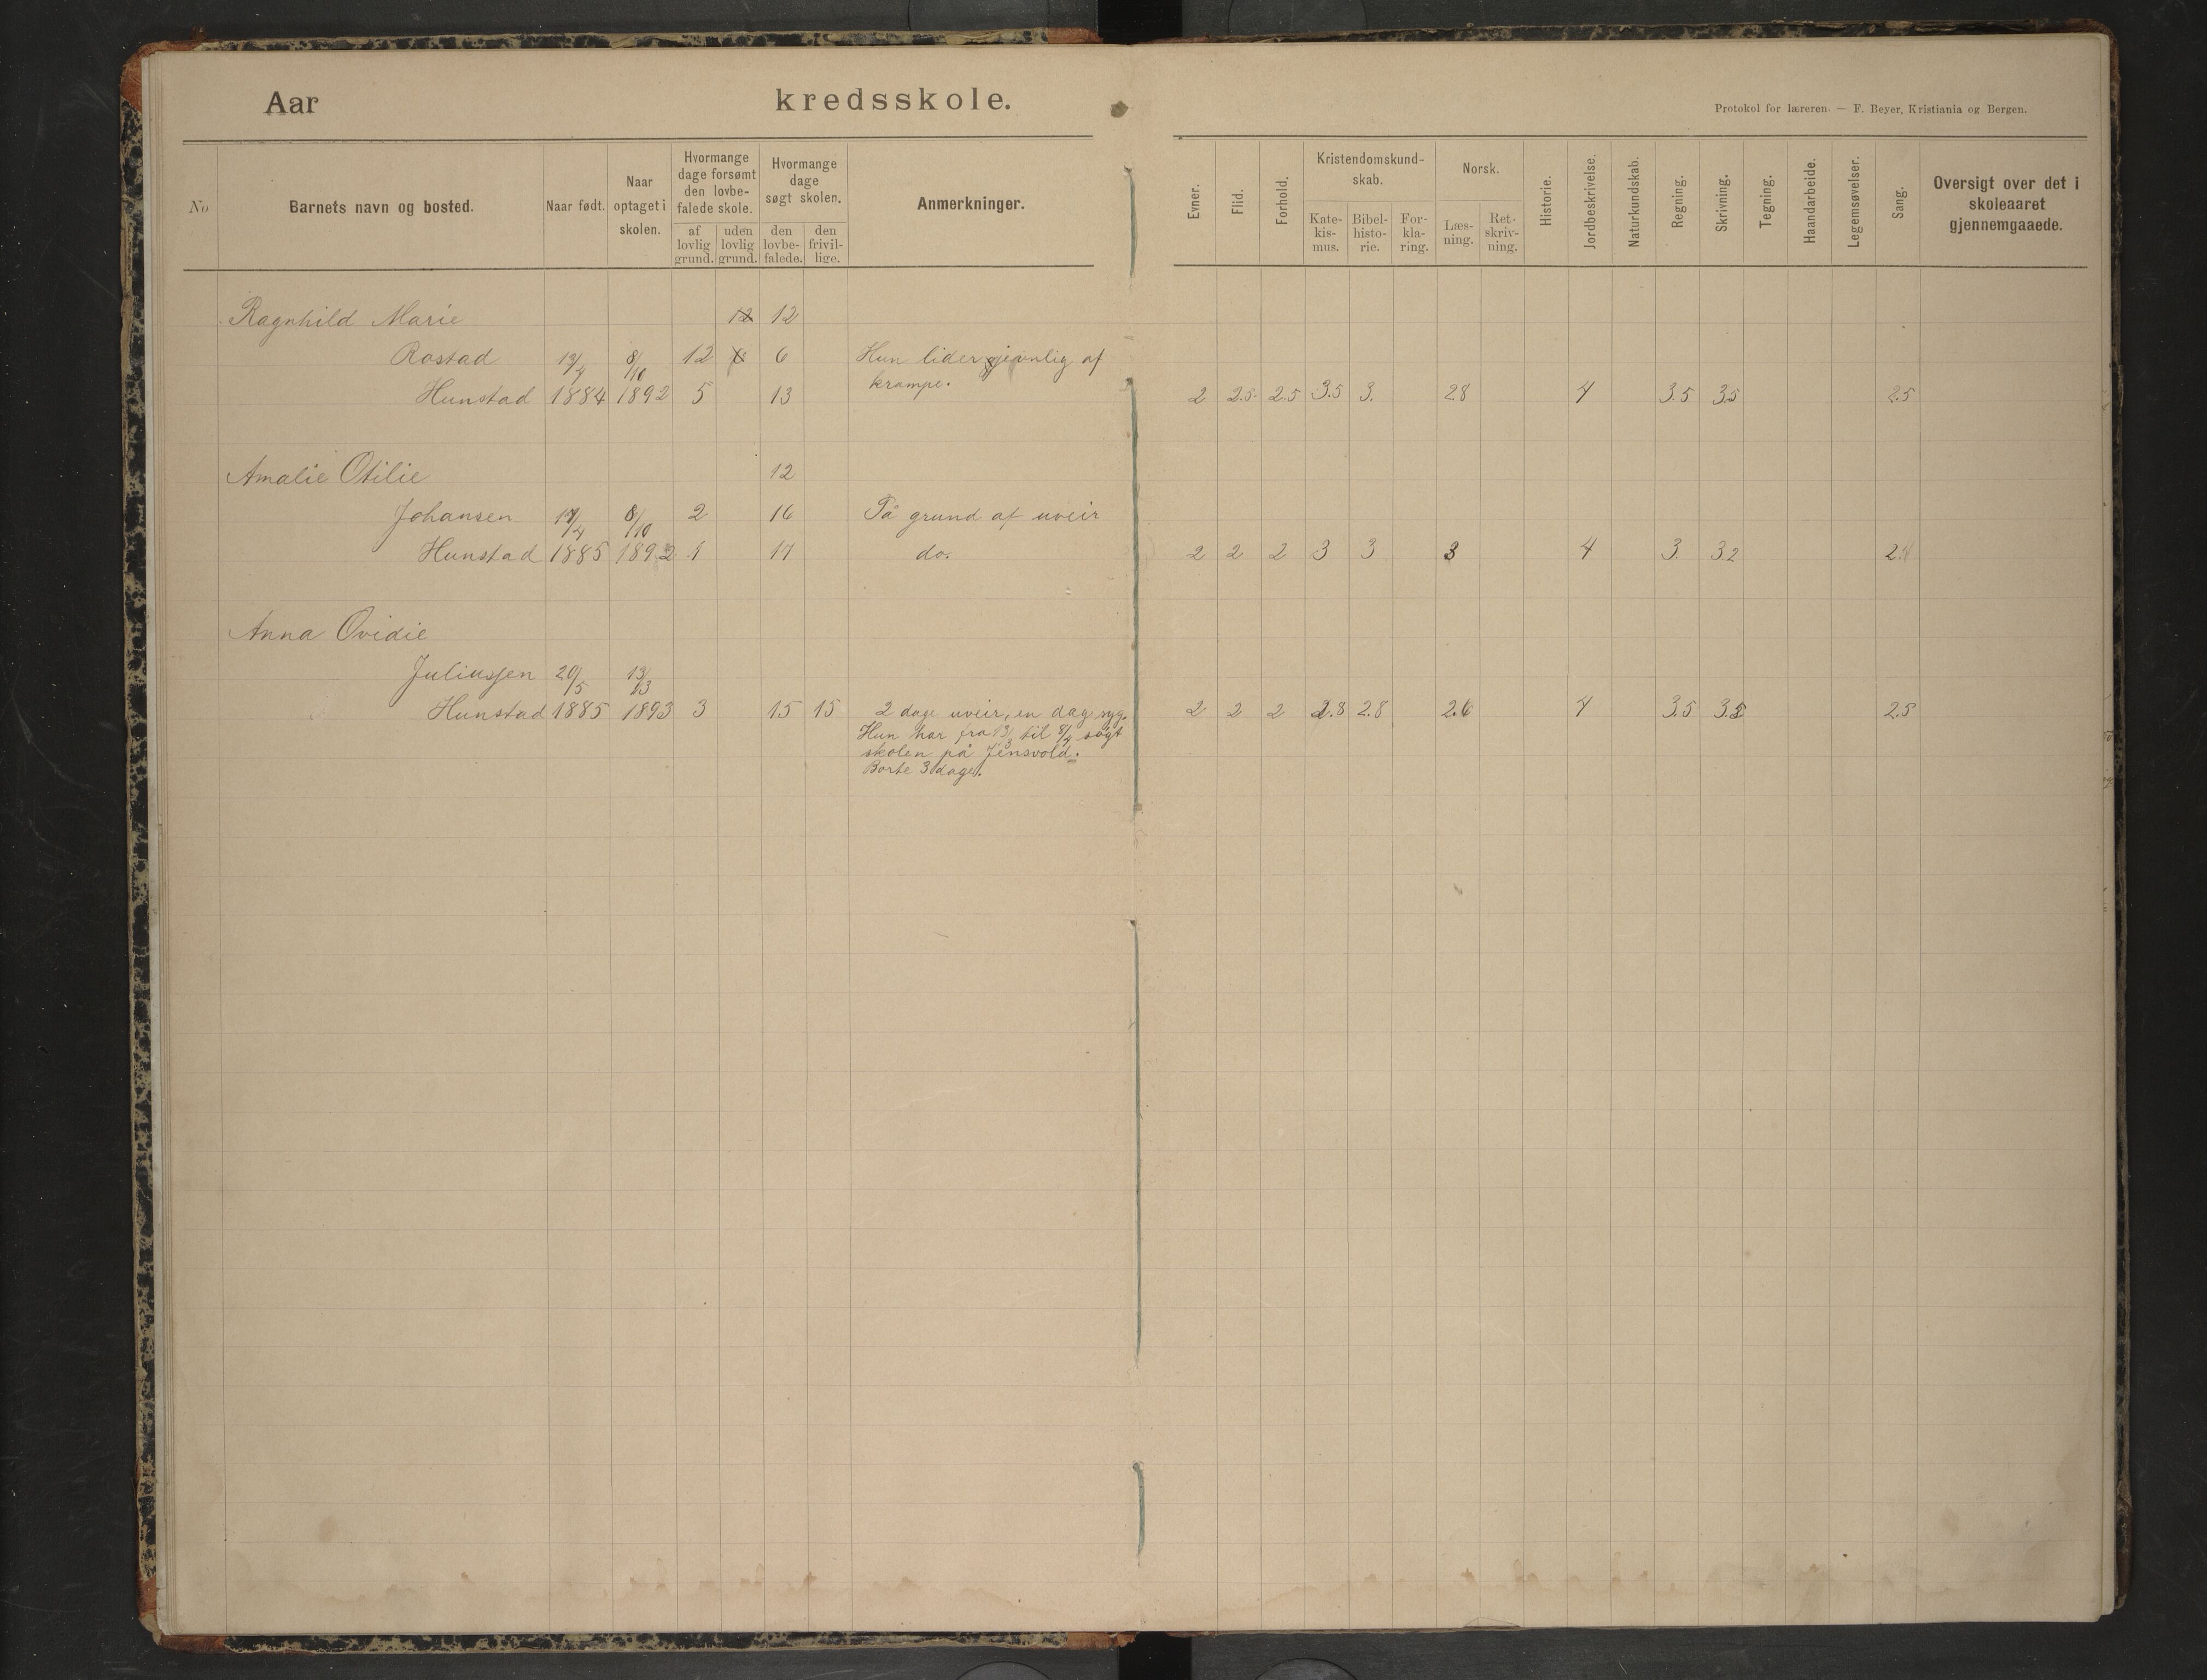 Aar kredsskole.
Protokol for læreren. — F. Beyer, Kristiania og Bergen.
No
Barnets navn og bosted.
Naar født.
Naar optaget i skolen.
Hvormange dage forsømt den lovbe-falede skole.
af lovlig grund.
uden lovlig grund.
Hvormange dage søgt skolen.
den lovbe-falede.
den frivil-lige.
Anmerkninger.
Evner.
Flid.
Forhold.
Kristendomskund-skab.
Kate-kis-mus.
Bibel-histo-rie.
For-kla-ring.
Norsk.
Læs-ning.
Ret-skriv-ning.
Historie.
Jordbeskrivelse.
Naturkundskab.
Regning.
Skrivning.
Tegning.
Haandarbeide.
Legemsøvelser.
Sang.
Oversigt over det i skoleaaret gjennemgaaede.
Ragnhild Marie 12 12
Rostad 8/10 12 6 Hun lider jevnlig af
krampe.
Hunstad 1884 1892 5 13 2 2.5 2.5 3.5 3. 2.8 4 3.5 3.5 2.5
Amalie Otilie 12
Johansen 8/10 2 16 På grund af uveir
Hunstad 1885 1892 1 17 do. 2 2 2 3 3 3 4 3. 3.2
Anna Ovidie
Juliussen 20/5 13/3
Hunstad 1885 1893 3 15 15 2 dage uveir, en dag syg. 2 2 2 2.8 2.8 2.6 4 3.5 2.5
Hun har fra 13/3 til 8/4 søgt
skolen på Jensvold.
Borte 3 dage.